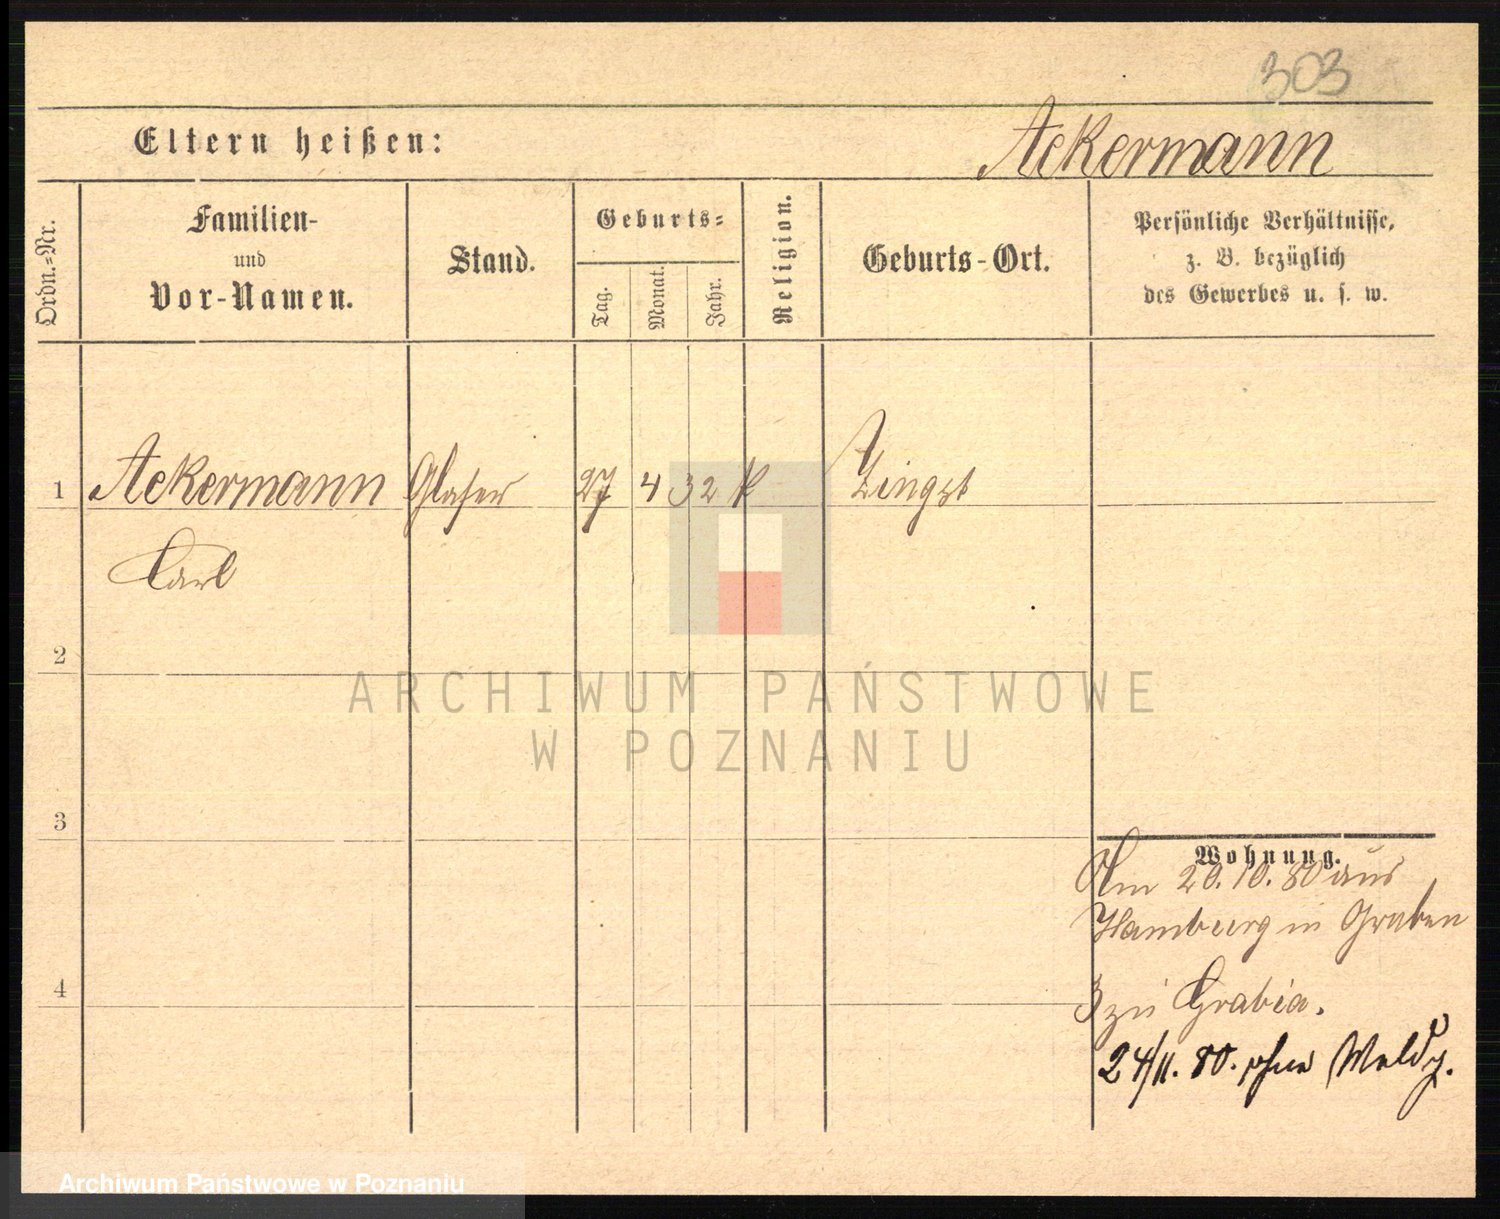 303
Eltern heißen:
Ackermann
Ordn.=Nr.
Familien-
und
Vor-Namen.
Stand.
Geburts=
Tag.
Monat.
Jahr.
Religion.
Geburts-Ort.
Persönliche Verhältnisse,
z. B. bezüglich
des Gewerbes u. s. w.
1 Ackermann Glaser 27 4 32 k Zingst
Carl
2
3
4
Wohnung.
Am 20.10.80 aus
Hamburg in Graben
3 zu Grabia.
24/11. 80. ohne Meldg.
ARCHIWUM PAŃSTWOWE
W POZNANIU
Archiwum Państwowe w Poznaniu